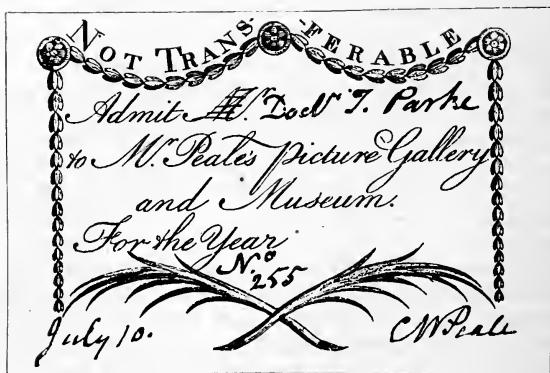 NOT TRANS- -FERABLE
Admit Mr. Docr. T. Parke
to Mr. Peale's Picture Gallery
and Museum.
For the Year
No.
255
July 10.
CWPeale